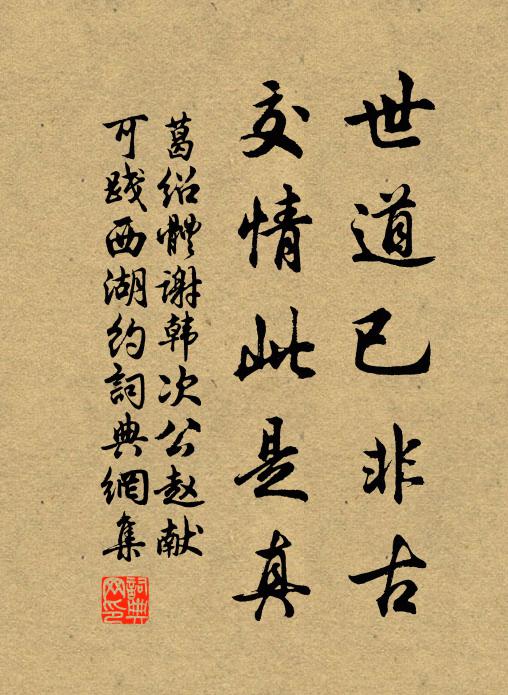 世道已非古
交情此是真
葛绍體谢韩次公赵献
可践西湖约詞典網集
詞典网印